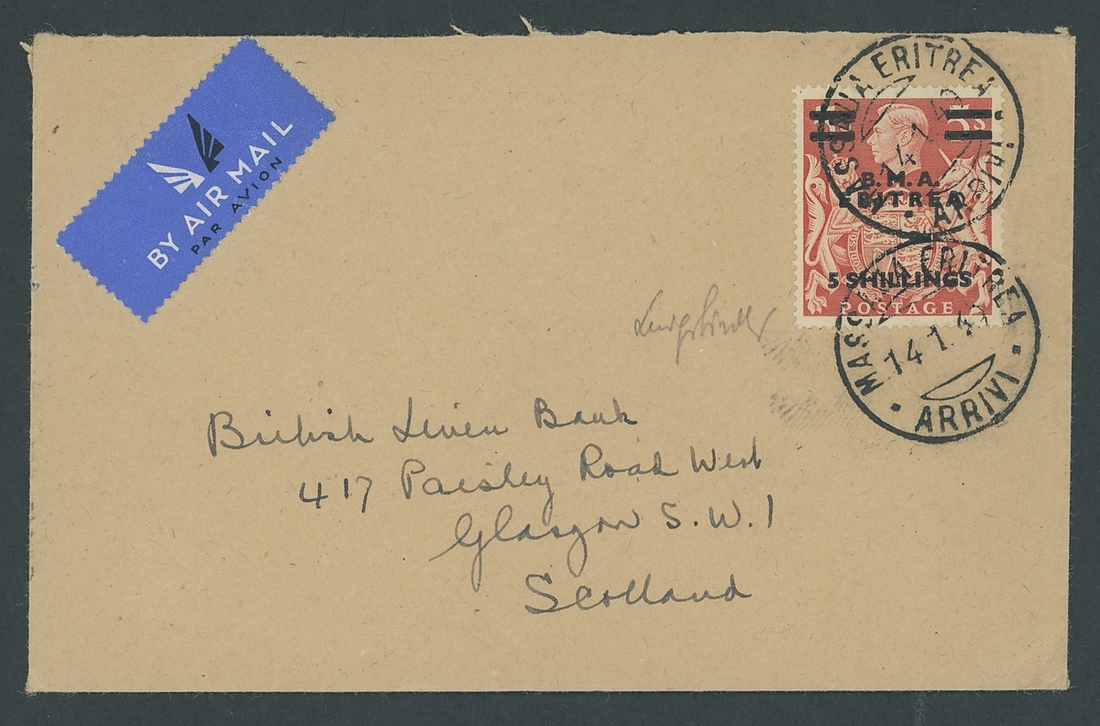 BY AIR MAIL
PAR AVION
MASSAUA ERITREA
14.1.4
ARRIVI
5S
B.M.A.
ERITREA
5 SHILLINGS
POSTAGE
MASSAUA ERITREA
14.1.4
ARRIVI
British Linen Bank
417 Paisley Road West
Glasgow S.W.1
Scotland